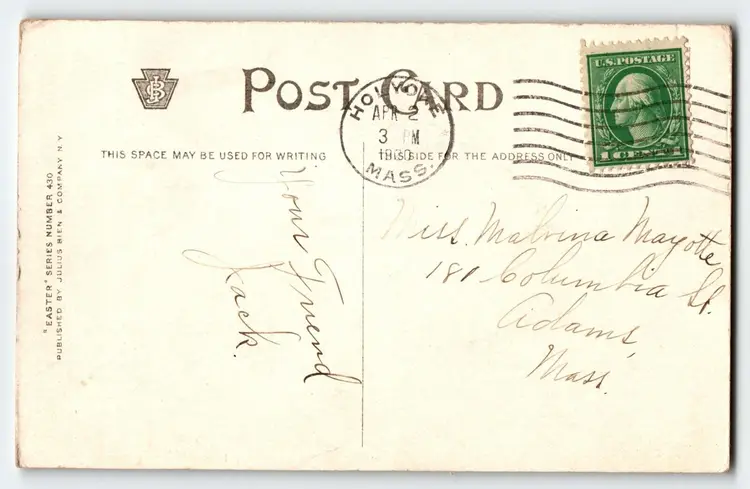 POST CARD
THIS SPACE MAY BE USED FOR WRITING
THIS SIDE FOR THE ADDRESS ONLY
HOLYOKE
APR 2
3 PM
1920
MASS.
U.S. POSTAGE
1 CENT 1
"EASTER" SERIES NUMBER 430
PUBLISHED BY JULIUS BIEN & COMPANY N.Y.
Your Friend
Jack.
Miss. Malvina Mayotte
181 Columbia St.
Adams,
Mass.